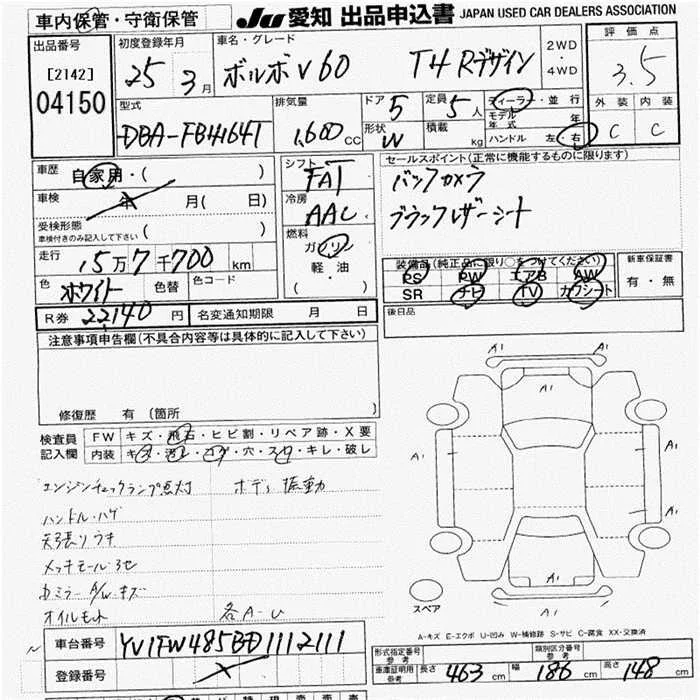 車内保管・守衛保管
JU 愛知 出品申込書 JAPAN USED CAR DEALERS ASSOCIATION
出品番号
[2142]
04150
初度登録年月
25 3月
車名・グレード
ボルボ V60 T4 Rデザイン
2WD
・
4WD
評価点
3.5
外装 内装
C C
型式
DBA-FB4164T
排気量
1,600 CC
ドア 5
形状 W
定員 5人
積載 kg
ディーラー・並行
モデル年式 年
ハンドル 左・右
車歴 自家用・( )
車検 年 月( 日)
受検形態
車検付きのみ記入して下さい ( )
走行 15万7千700 km
色 ホワイト 色替 色コード
R券 22140 円 名変通知期限 月 日
シフト
FAT
冷房
AAC
燃料
ガソリン
・
軽・油
( )
セールスポイント(正常に機能するものに限ります)
バックカメラ
ブラックレザーシート
装備品(純正品に限り○をつけてください)
PS PW エアB AW
SR ナビ TV カワシート
新車保証書
有・無
後日品
注意事項申告欄(不具合内容等は具体的に記入して下さい)
修復歴 有 (箇所 )
検査員記入欄
FW キズ・飛石・ヒビ割・リペア跡・X要
内装 キズ・汚レ・コゲ・穴・スレ・キレ・破レ
エンジンチェックランプ点灯 ボディ振動
ハンドル・ハゲ
天張りウキ
メッキモール
ミラー A/W キズ
オイルモレ 各A-U
A1
A1
A1
A1
A1
A1
A1
A1
スペア
A-キズ E-エクボ U-凹み W-補修跡 S-サビ C-腐食 XX-交換済
車台番号 YV1FW485BD1112111
登録番号
形式指定番号 参考
類別区分番号 参考
車庫証明用 参考 長さ 463 cm 幅 186 cm 高さ 148 cm